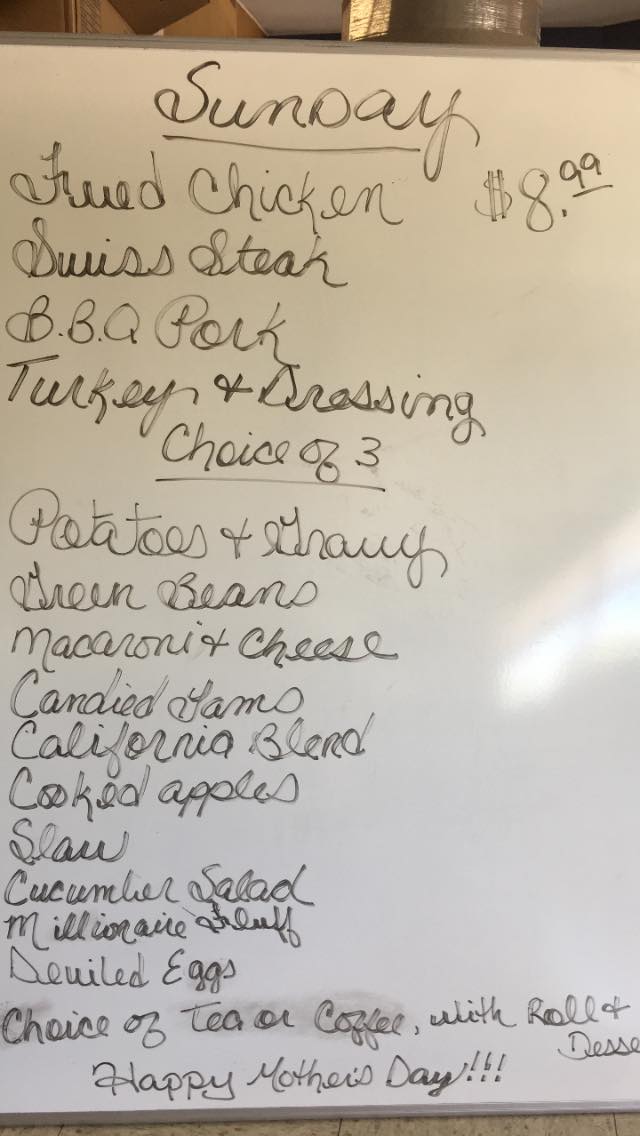 Sunday
Fried Chicken $8.99
Swiss Steak
B.B.Q Pork
Turkey & Dressing
Choice of 3
Potatoes & Gravy
Green Beans
Macaroni & Cheese
Candied Yams
California Blend
Cooked apples
Slaw
Cucumber Salad
Millionaire Fluff
Deviled Eggs
Choice of Tea or Coffee, with Roll &
Desse
Happy Mother's Day!!!